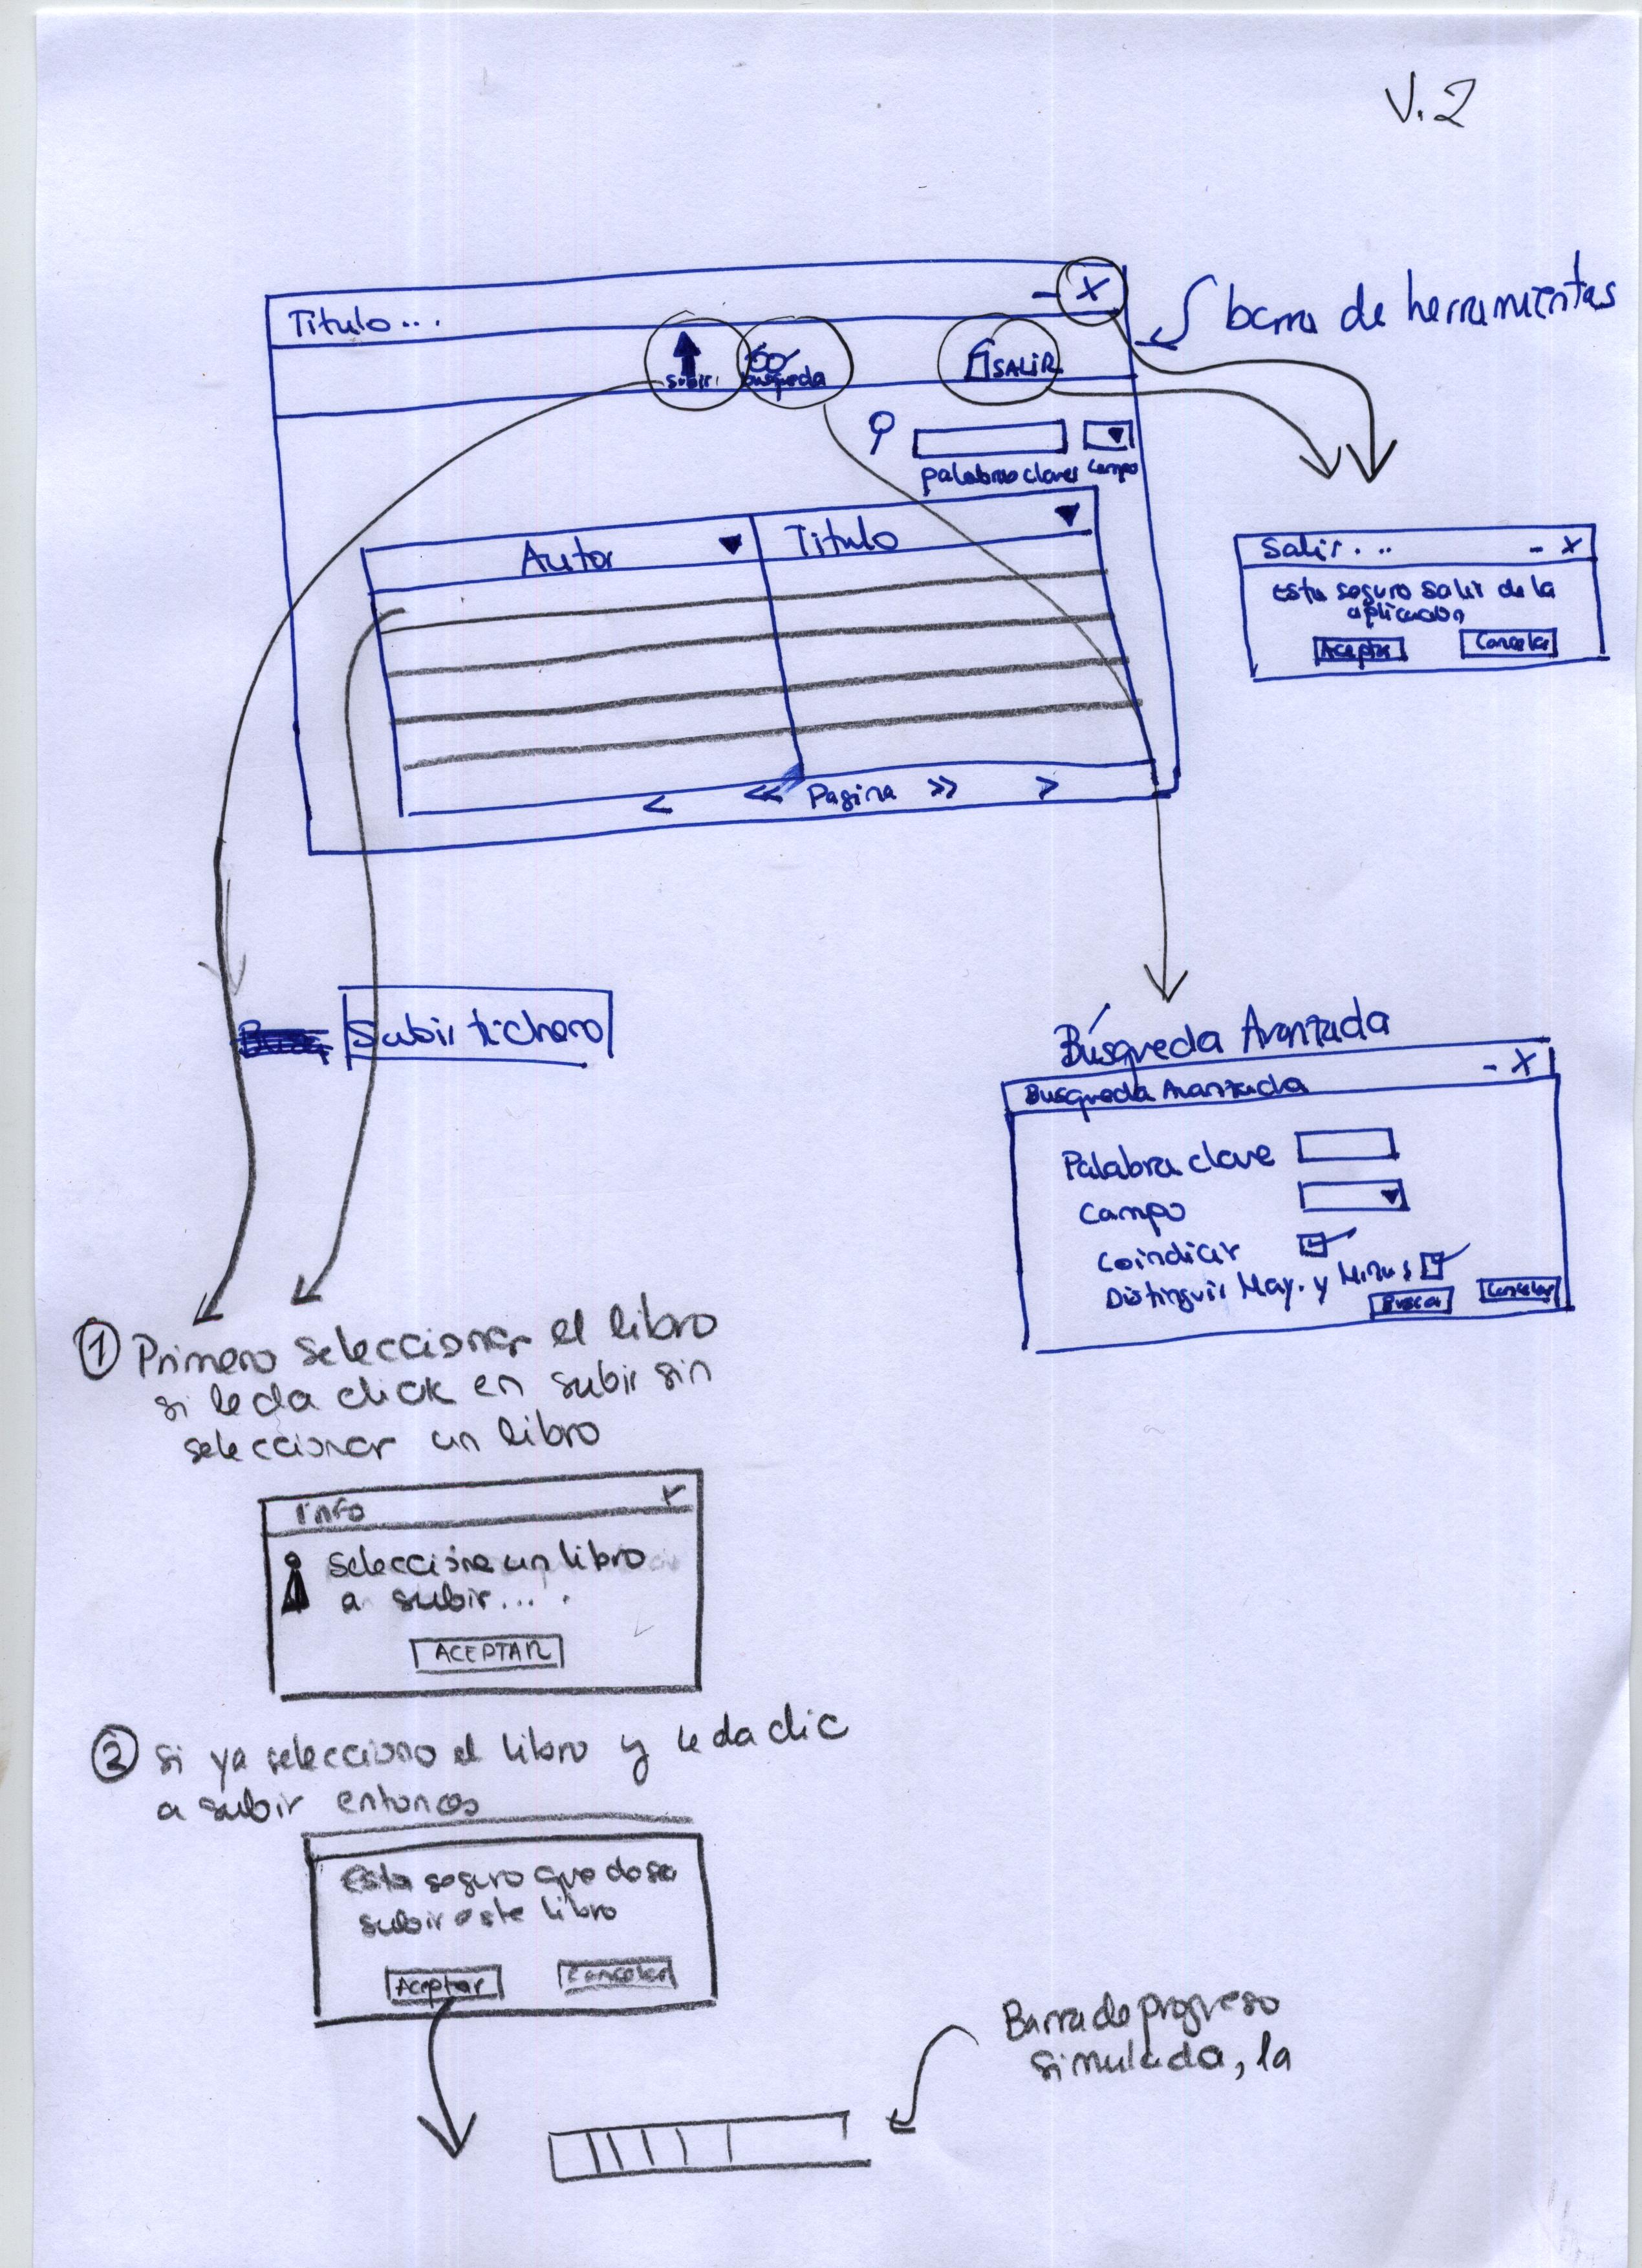 V.2
Titulo...
- X
barra de herramientas
Subir
busqueda
SALIR
palabras claves
campo
Autor
Titulo
< << Pagina >> >
Salir... - X
Esta seguro salir de la
aplicacion
Aceptar Cancelar
Subir fichero
Búsqueda Avanzada
Busqueda Avanzada - X
Palabra clave
Campo
Coindicir
Distinguir May. y Minus
Buscar Cancelar
1 Primero seleccionar el libro
si le da click en subir sin
seleccionar un libro
Info
Seleccione un libro
a subir...
ACEPTAR
2 si ya selecciono el libro y le da clic
a subir entonces
Esta seguro que desea
subir este libro
Aceptar Cancelar
Barra de progreso
simulada, la